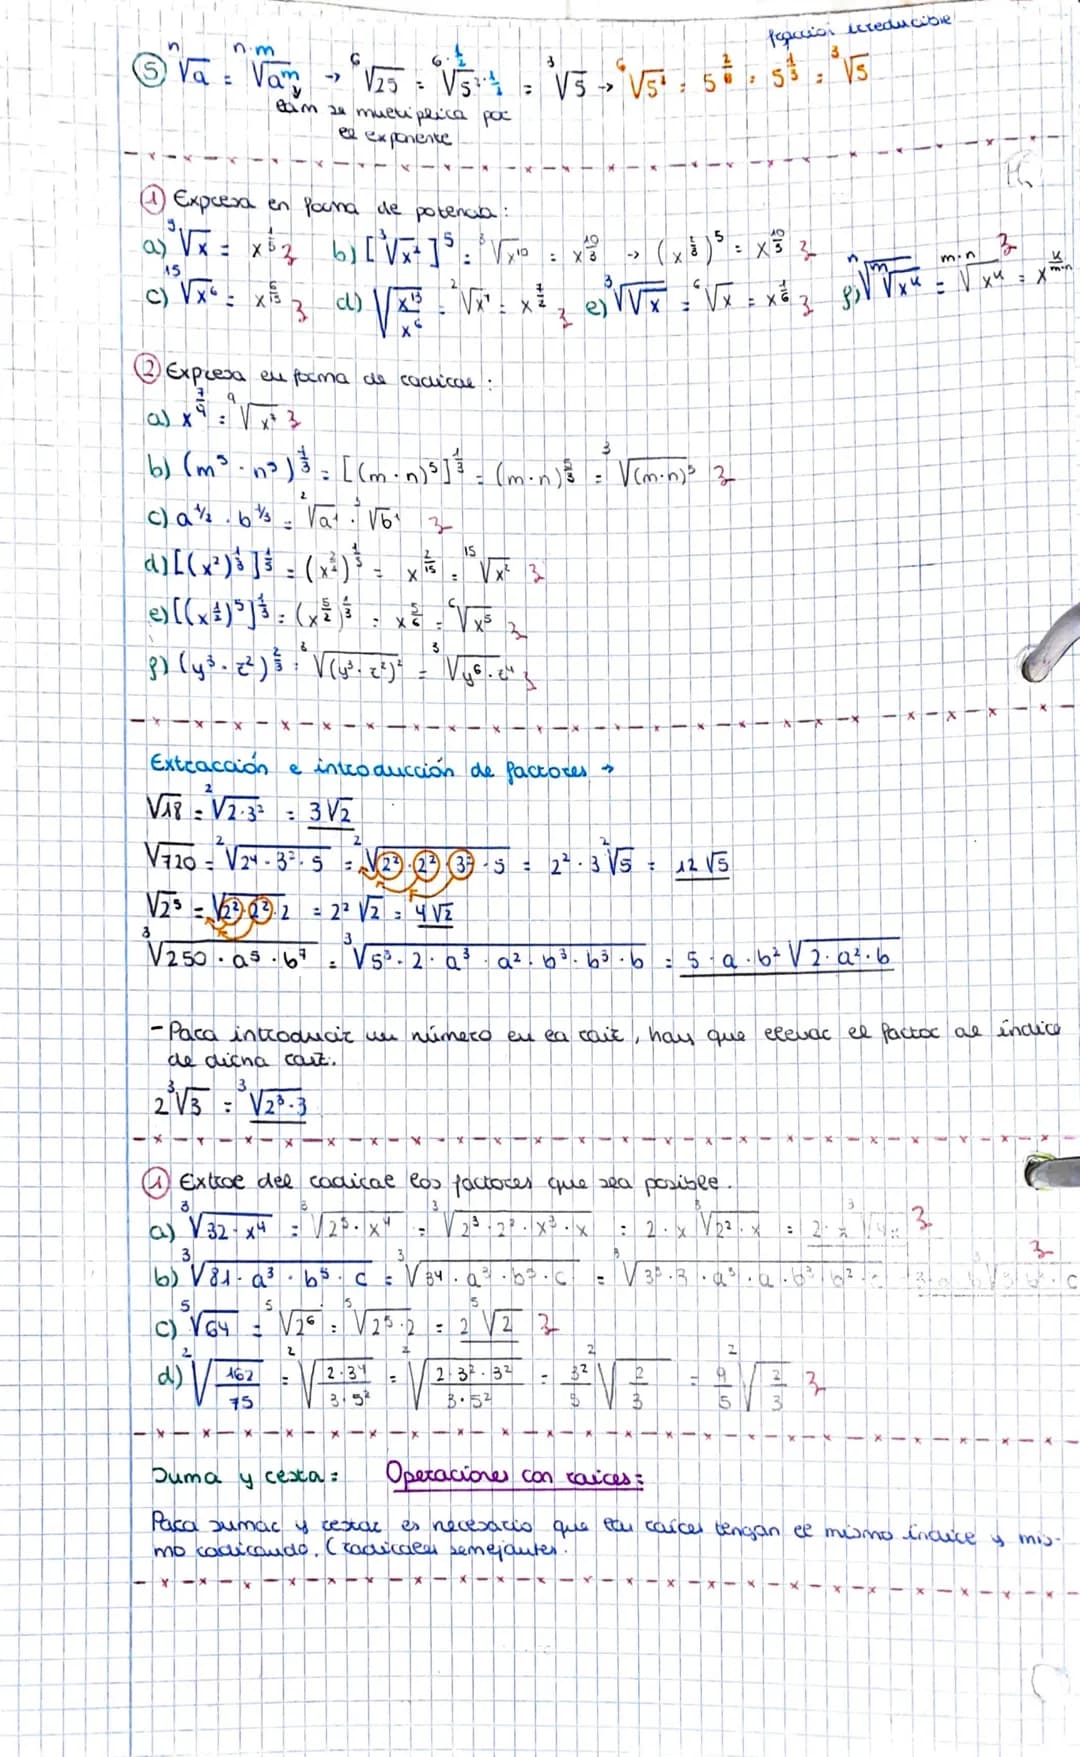 ⑤ ⁿ√a = ⁿ·ᵐ√aᵐ → ⁶√25 = ⁶·½√5²·½ = ³√5 → ⁶√5² = 5^(2/6) = 5^(1/3) = ³√5
fracción irreducible
la m se multiplica por
el exponente
① Expresa en forma de potencia:
a) ⁵√x = x^(1/5) b) [³√x²]⁵ = ³√x¹⁰ = x^(10/3) → (x^(2/3))⁵ = x^(10/3)
c) ¹⁵√x⁶ = x^(6/15) d) √(x¹³/x⁶) = ²√x⁷ = x^(7/2) e) ³√√x = ⁶√x = x^(1/6) f) ⁿ√ᵐ√xᵏ = ᵐ·ⁿ√xᵏ = x^(k/m·n)
② Expresa en forma de radical:
a) x^(7/9) = ⁹√x⁷
b) (m⁵·n⁵)^(1/3) = [(m·n)⁵]^(1/3) = (m·n)^(5/3) = ³√(m·n)⁵
c) a^(1/2) · b^(1/3) = ²√a¹ · ³√b¹
d) [(x²)^(1/3)]^(1/5) = (x^(2/3))^(1/5) = x^(2/15) = ¹⁵√x²
e) [(x^(1/2))⁵]^(1/3) = (x^(5/2))^(1/3) = x^(5/6) = ⁶√x⁵
f) (y³·z²)^(2/3) = ³√(y³·z²)² = ³√y⁶·z⁴
Extracción e introducción de factores →
√18 = ²√2·3² = 3√2
√720 = ²√2⁴·3²·5 = ²√2²·2²·3²·5 = 2²·3 ²√5 = 12√5
√2⁵ = √2²·2²·2 = 2²√2 = 4√2
³√250·a⁵·b⁷ = ³√5³·2·a³·a²·b³·b³·b = 5·a·b²√2·a²·b
- Para introducir un número en la raíz, hay que elevar el factor al índice
de dicha raíz.
2³√3 = ³√2³·3
① Extrae del radical los factores que sea posible.
a) ³√32·x⁴ = ³√2⁵·x⁴ = ³√2³·2²·x³·x = 2·x ³√2²·x = 2·x
b) ³√81·a³·b⁵·c = ³√3⁴·a³·b⁵·c = ³√3³·3·a³·a·b³·b²·c
c) ⁵√64 = ⁵√2⁶ = ⁵√2⁵·2 = 2 ⁵√2
d) ²√(162/75) = ²√(2·3⁴/3·5²) = ²√(2·3²·3²/3·5²) = 3²/5 ²√(2/3) = 9/5 ²√(2/3)
Suma y resta: Operaciones con raíces:
Para sumar y restar es necesario que las raíces tengan el mismo índice y mis-
mo radicando. (radicales semejantes.